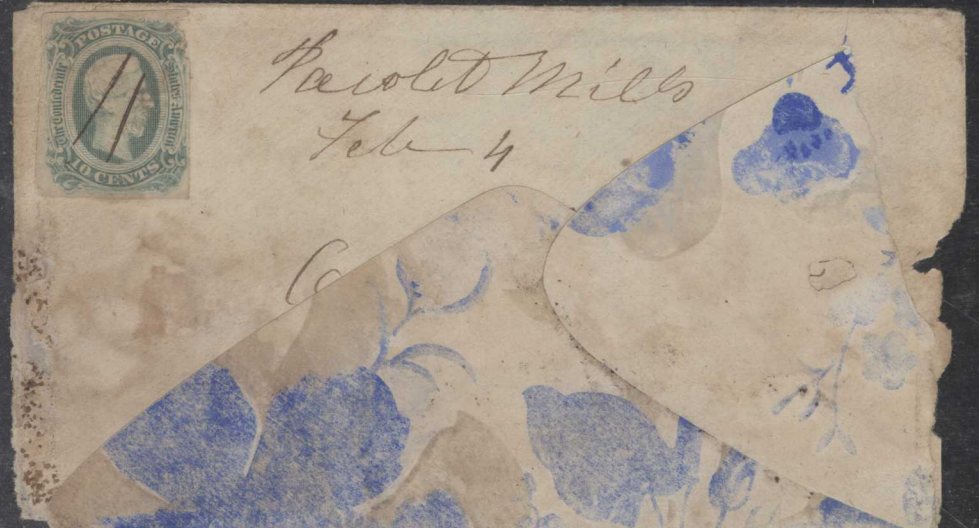 POSTAGE
The Confederate States America
10 CENTS
Pacolet Mills
Feb 4
C